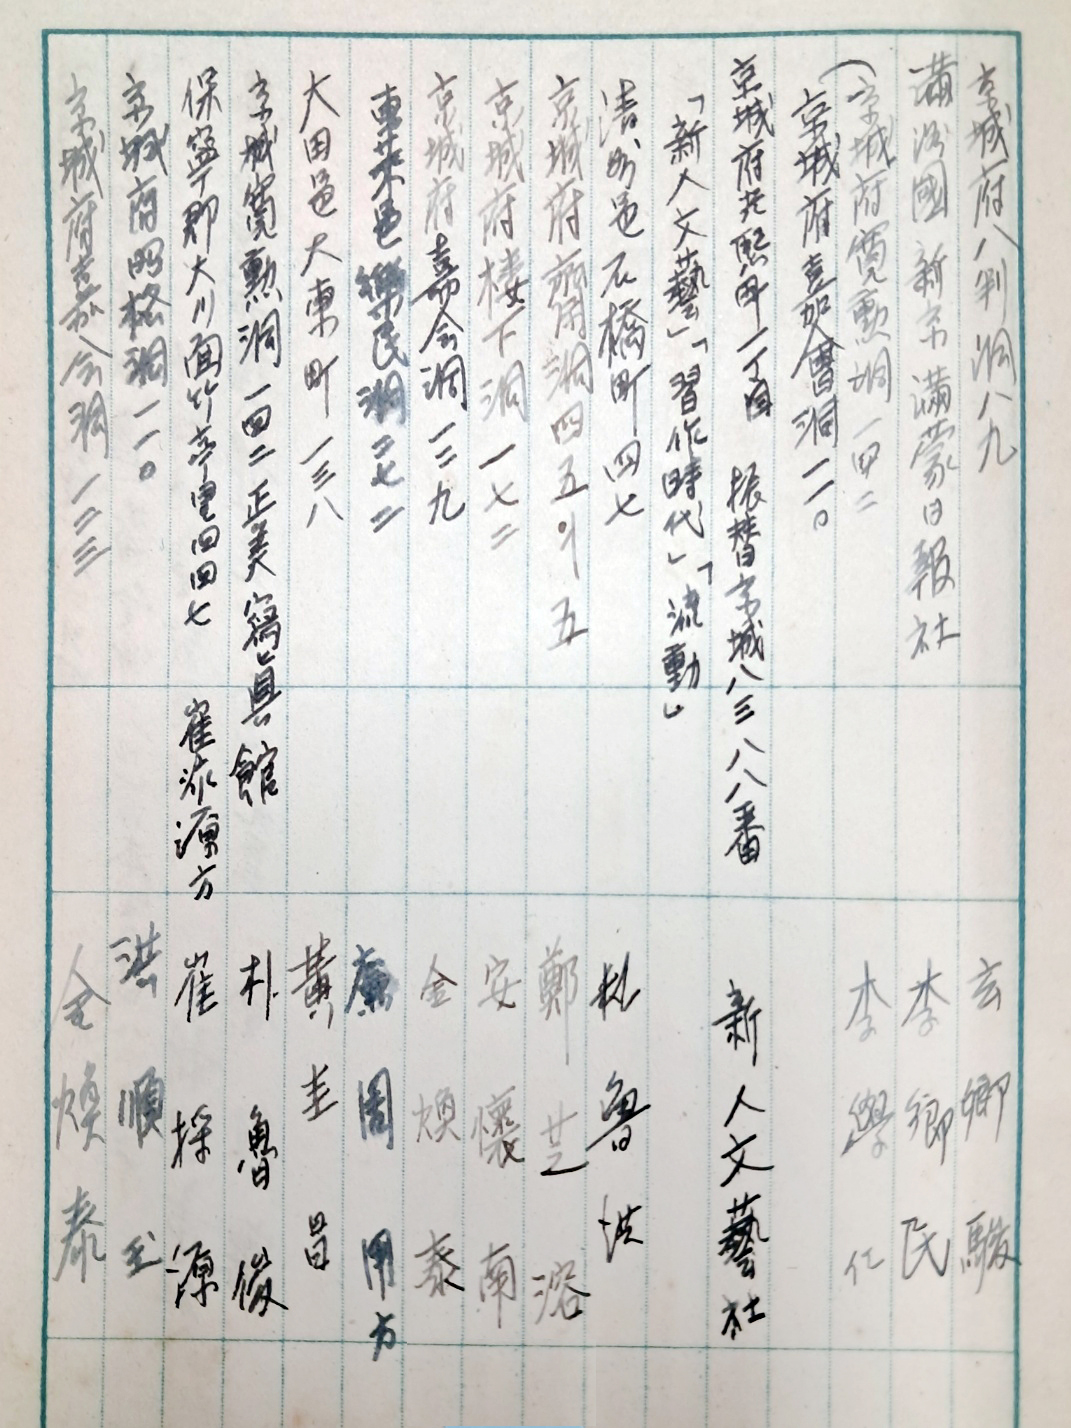 京城府八判洞八九 玄卿駿
満洲國新京満蒙日報社 李卿民
(京城府寛勳洞一四二 李學仁
京城府嘉會洞一一〇
京城府光熙町一丁目 振替京城八三八八番 新人文藝社
「新人文藝」「習作時代」「流動」
清州邑石橋町四七 朴魯洪
京城府齋洞四五ノ五 鄭芝溶
京城府樓下洞一七二 安懷南
京城府嘉会洞一二九 金煥泰
東萊邑樂民洞二七二 廉周用方
大田邑大東町一三八 黃圭昌
京城寛勳洞一四二正美寫眞館 朴魯俊
保寧郡大川面竹亭里四四七 崔淙源方 崔採源
京城府明格洞一一〇 洪順玉
京城府嘉会洞一二三 金煥泰